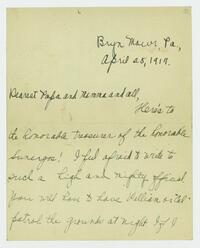 Bryn Mawr, Pa,
April 25, 1919.
Dearest Papa and Momma and all,
Here's to
the honorable treasurer of the honorable
I feel afraid to write to
such a high and mighty official
Youn will have to have William
patrol the grounds at night if I